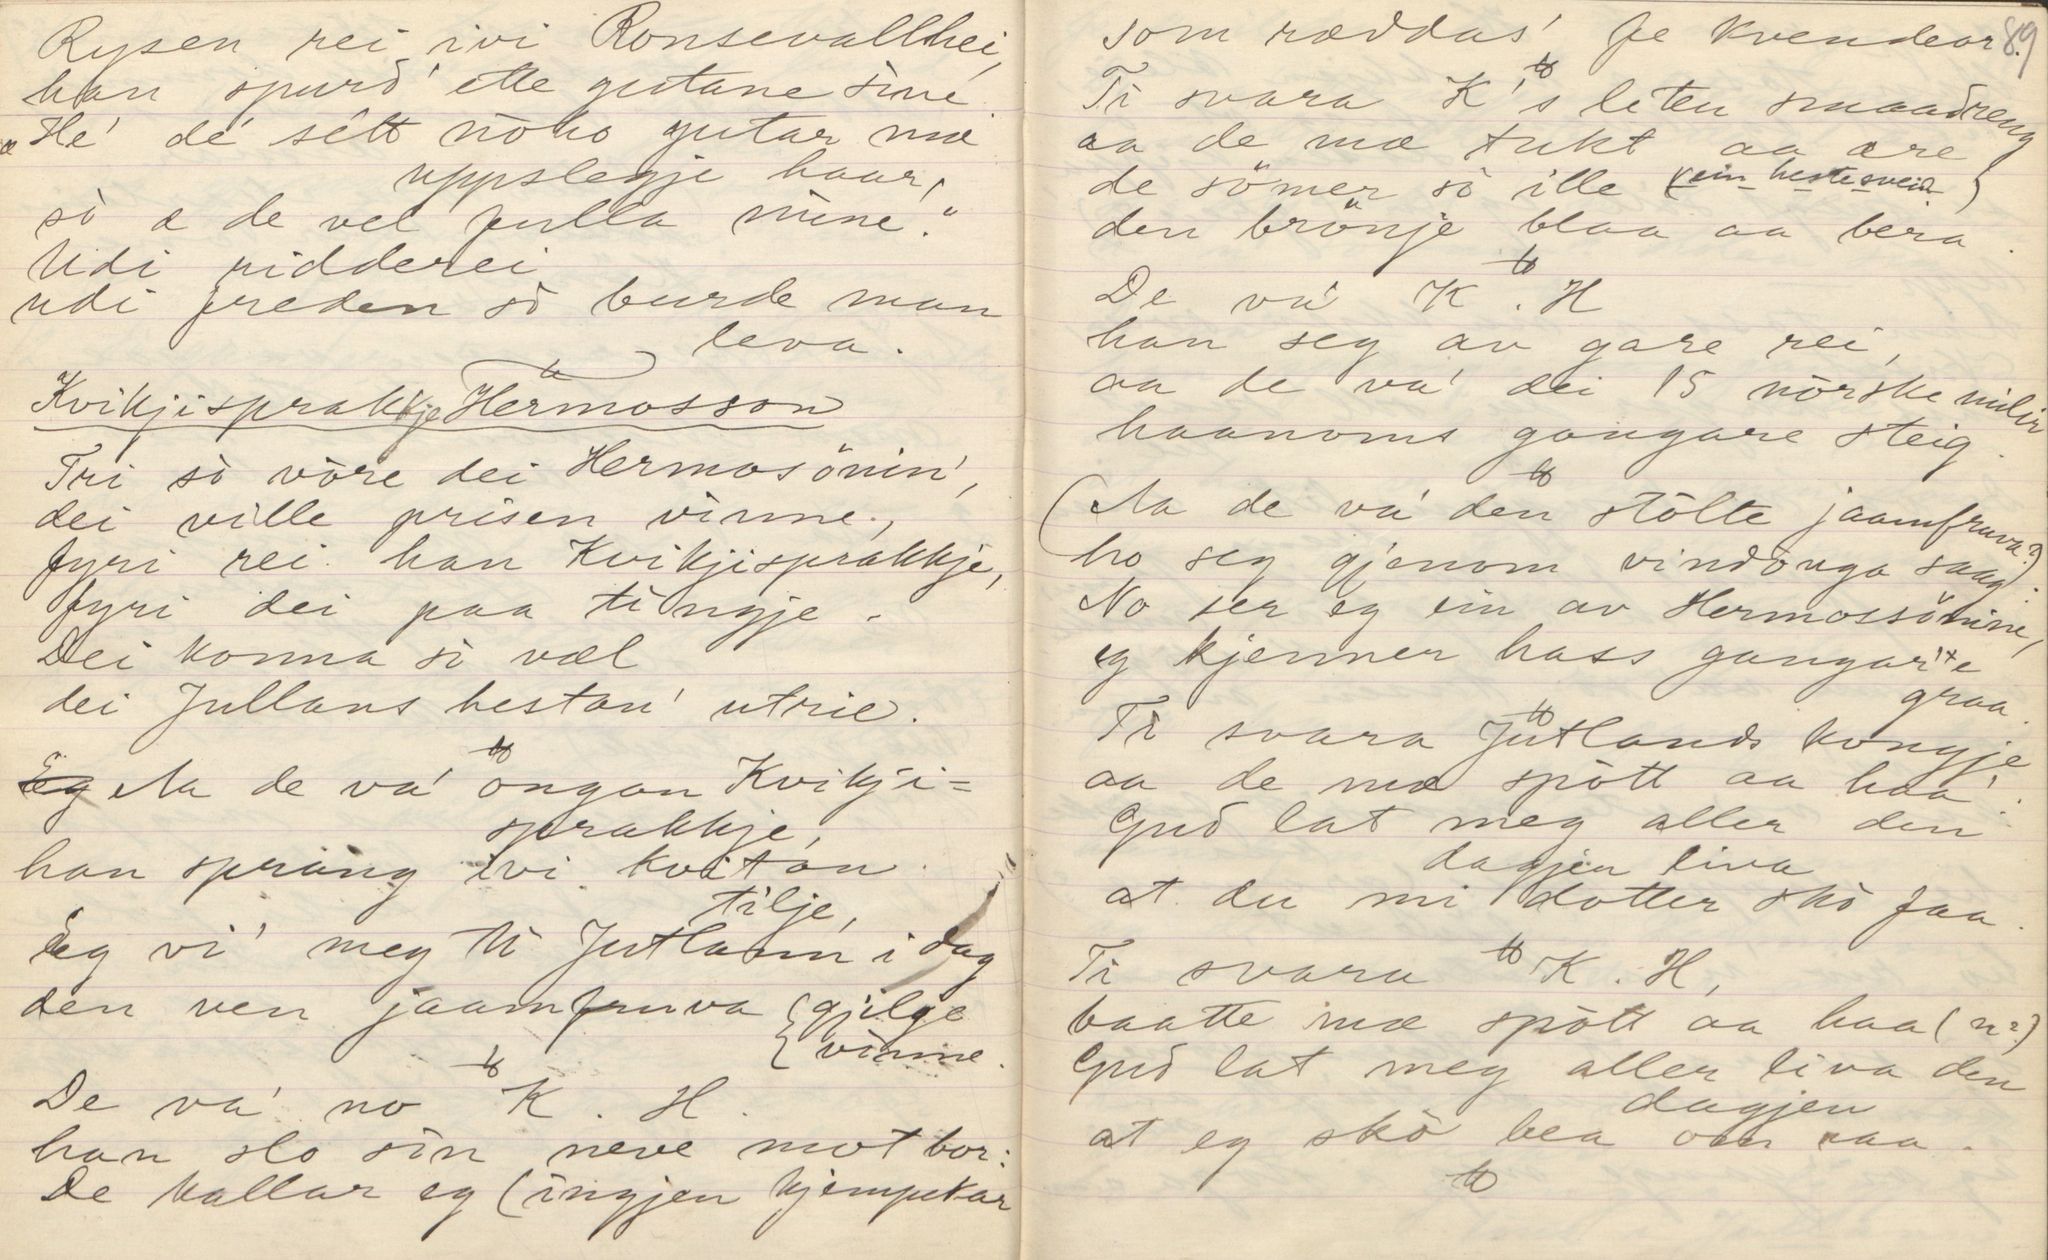 Rysen rei ivi Ronsevallhei,
han spurd' ette gutane sine
"He' de' sétt nòko gutar mæ
uppslegje haar,
sò æ de vel fulla mine'."
Udi ridderei
udi freden sò burde man
leva.
Kvikjisprakkje Hermosson
Tri sò vòre dei Hermosönin',
dei ville prisen vinne,
fyri rei han Kvikjisprakkje,
fyri dei paa tingje.
Dei konna sò væl
dei Jullans hestan' utrie.
Aa de va' ongan Kvikji=
sprakkje,
han sprang ivi kvitan
tilje,
Eg vi' meg ti Jutlann i dag
den ven jaamfruva { gjilge
{ vinne.
De va' no K. H.
han slo sin neve mot bor:
De kallar eg (ingjen kjempekar
89
som ræddas' fe kvendeor.
Ti svara K's leten smaadreng
aa de mæ tukt aa ære
de sömer sò ille (ein hestesvein)
den brönje blaa aa bera.
De va' K. H
han seg av gare rei,
aa de va' dei 15 nòrske milir
haanoms gangare steig.
(Aa de va' den stòlte jaamfruva?)
ho seg gjenom vindauga saag:
No ser eg ein av Hermossönine,
eg kjenner hass gangar'e
graa.
Ti svara Jutlands kongje
aa de mæ spòtt aa haa'.
Gud lat meg aller den
dagjen liva
at du mi dotter skò faa.
Ti svara K. H,
baatte mæ spòtt aa haa (n?)
Gud lat meg aller liva den
dagjen
at eg skò bea om aa.